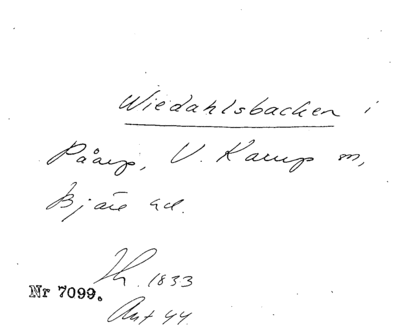 Wiedahlsbacken i
Påarp, V. Karup sn,
Bjäre hd.
Th. 1833
Nr 7099.
Ant 44